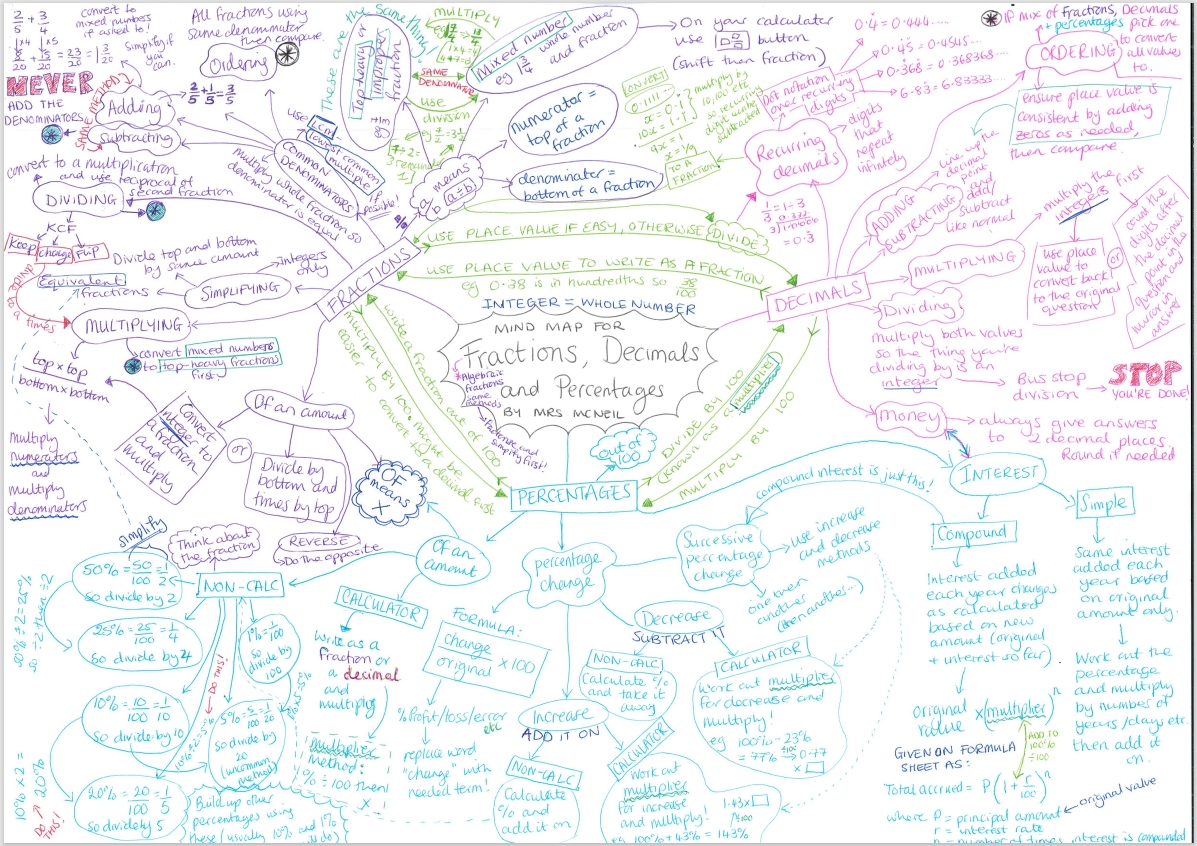 MIND MAP FOR
Fractions, Decimals
and Percentages
BY MRS MCNEIL
*Algebraic
fractions
same
methods
Factorise and
simplify first!
INTEGER = WHOLE NUMBER
FRACTIONS
2/5 + 3/4
convert to
mixed numbers
if asked to!
8/20 + 15/20 = 23/20 = 1 3/20
Simplify if
you can.
NEVER
ADD THE
DENOMINATORS
SAME METHOD
Adding
Subtracting
2/5 + 1/5 = 3/5
All fractions using
same denominator
then compare.
Ordering
use LCM
lowest common
multiple if
possible!
COMMON
DENOMINATORS
multiply whole fraction so
denominator is equal
convert to a multiplication
and use reciprocal of
second fraction
DIVIDING
KCF
Keep change Flip
Divide top and bottom
by same amount
Integers
only
Equivalent
fractions
SIMPLIFYING
MULTIPLYING
convert mixed numbers
to top-heavy fractions
first
top x top
bottom x bottom
multiply
numerators
and
multiply
denominators
Of an amount
convert
integer to
a fraction
and
multiply
or
Divide by
bottom and
times by top
OF
means
x
REVERSE
Do the opposite
These are the same thing!
top-heavy or
improper
fraction
MULTIPLY
SAME
DENOMINATOR
use
division
Mixed number
whole number
and fraction
eg 1 3/4
On your calculator
use button
(shift then fraction)
numerator =
top of a
fraction
denominator =
bottom of a fraction
a/b means (a÷b)
USE PLACE VALUE IF EASY, OTHERWISE DIVIDE
USE PLACE VALUE TO WRITE AS A FRACTION
eg 0.38 is in hundredths so 38/100
write a fraction out of 100
MULTIPLY BY 100, might be
easier to convert to decimal first
CONVERT
0.1111...
x = 0.1
10x = 1.1
9x = 1
x = 1/9
multiply by
10, 100 etc
so recurring
digit when
subtracted
TO A
FRACTION
DECIMALS
Recurring
decimals
Dot notation
over recurring
digits
0.4̇ = 0.444....
0.4̇5̇ = 0.4545...
0.3̇68̇ = 0.368368...
6.83̇ = 6.83333...
digits
that
repeat
infinitely
1/3 = 1÷3
= 0.3̇
IF mix of Fractions, Decimals
+ percentages pick one
to convert
all values
to.
ORDERING
ensure place value is
consistent by adding
zeros as needed,
then compare.
ADDING
SUBTRACTING
Line up the
decimal
point
and
add/
subtract
like normal
MULTIPLYING
multiply the
integers first
use place
value to
convert back
to the original
question
or
count the
digits after
the decimal
point in the
question and
mirror in
answer
Dividing
multiply both values
so the thing you're
dividing by is an
integer
Bus stop
division
STOP
YOU'RE DONE!
Money
always give answers
to 2 decimal places,
Round if needed
DIVIDE BY 100
(known as a multiplier)
MULTIPLY BY 100
PERCENTAGES
out of
100
Of an
amount
NON-CALC
Think about
the fraction
simplify
50% = 50/100 = 1/2
so divide by 2
25% = 25/100 = 1/4
so divide by 4
50% ÷ 2 = 25%
so ÷2 then ÷2
10% = 10/100 = 1/10
so divide by 10
20% = 20/100 = 1/5
so divide by 5
10% x 2 =
20%
DO THIS!
1% = 1/100
so
divide by
100
5% = 5/100 = 1/20
so divide by
20
(uncommon
method)
10% ÷ 2 = 5%
DO THIS!
1% x 5 = 5%
Build up other
percentages using
these (usually 10% and 1%
CALCULATOR
Write as a
fraction or
a decimal
and
multiply
multiplier
method:
% ÷ 100 then
x
percentage
change
FORMULA:
change/original x 100
% Profit/loss/error
etc
replace word
"change" with
needed term!
Decrease
SUBTRACT IT
NON-CALC
Calculate %
and take it
away
CALCULATOR
Work out multiplier
for decrease and
multiply!
eg 100% - 23%
= 77% ÷100→ 0.77
x
Increase
ADD IT ON
NON-CALC
Calculate
% and
add it on
CALCULATOR
Work out
multiplier
for increase
and multiply!
eg 100% + 43% = 143%
1.43 x
÷100
Successive
percentage
change
use increase
and decrease
methods
one then
another
(then another...)
compound interest is just this!
INTEREST
Compound
Interest added
each year changes
as calculated
based on new
amount (original
+ interest so far)
original
value x (multiplier)ⁿ
ADD TO
100%
÷100
GIVEN ON FORMULA
SHEET AS:
Total accrued = P(1 + r/100)ⁿ
where P = principal amount
original value
r = interest rate
n = number of times interest is compounded
Simple
Same interest
added each
year based
on original
amount only.
Work out the
percentage
and multiply
by number of
years/days etc.
then add it
on.